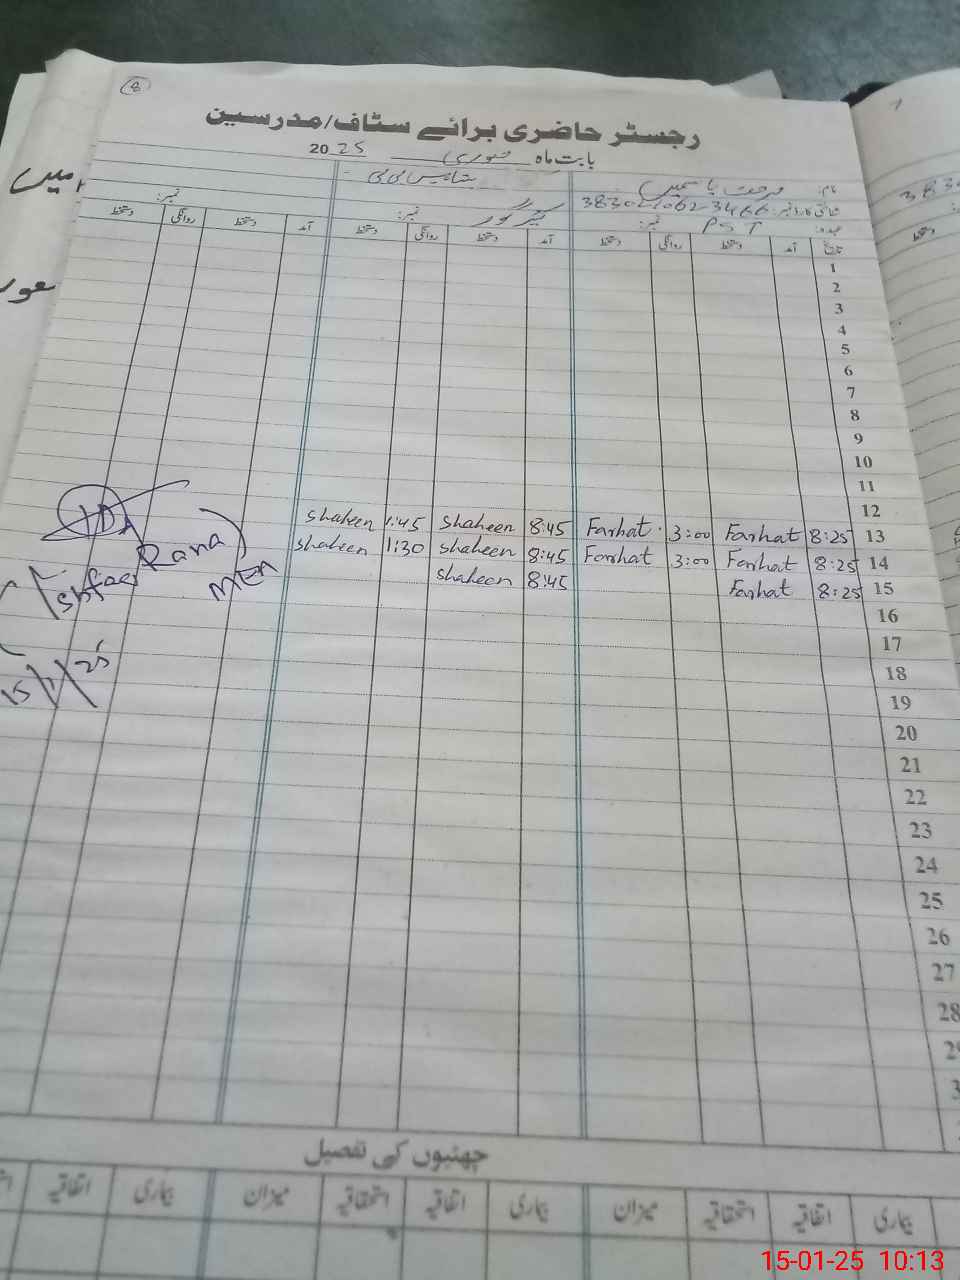 8
رجسٹر حاضری برائے سٹاف/مدرسین
بابت ماہ جنوری 2025
نام: فرحت یاسمین
شاہین بی بی
شناختی کارڈ نمبر: 38302-10623466
عہدہ: PST نمبر:
نمبر:
نمبر:
تاریخ آمد دستخط روانگی دستخط آمد دستخط روانگی دستخط آمد دستخط روانگی دستخط
1
2
3
4
5
6
7
8
9
10
11
12
13 8:25 Farhat 3:00 Farhat 8:45 Shaheen 1:45 Shaheen
14 8:25 Farhat 3:00 Farhat 8:45 Shaheen 1:30 Shaheen
15 8:25 Farhat 8:45 Shaheen
16
17
18
19
20
21
22
23
24
25
26
27
28
Rana
MEA
15/1/25
چھٹیوں کی تفصیل
بیماری اتفاقیہ استحقاقیہ میزان بیماری اتفاقیہ استحقاقیہ میزان بیماری اتفاقیہ
15-01-25 10:13